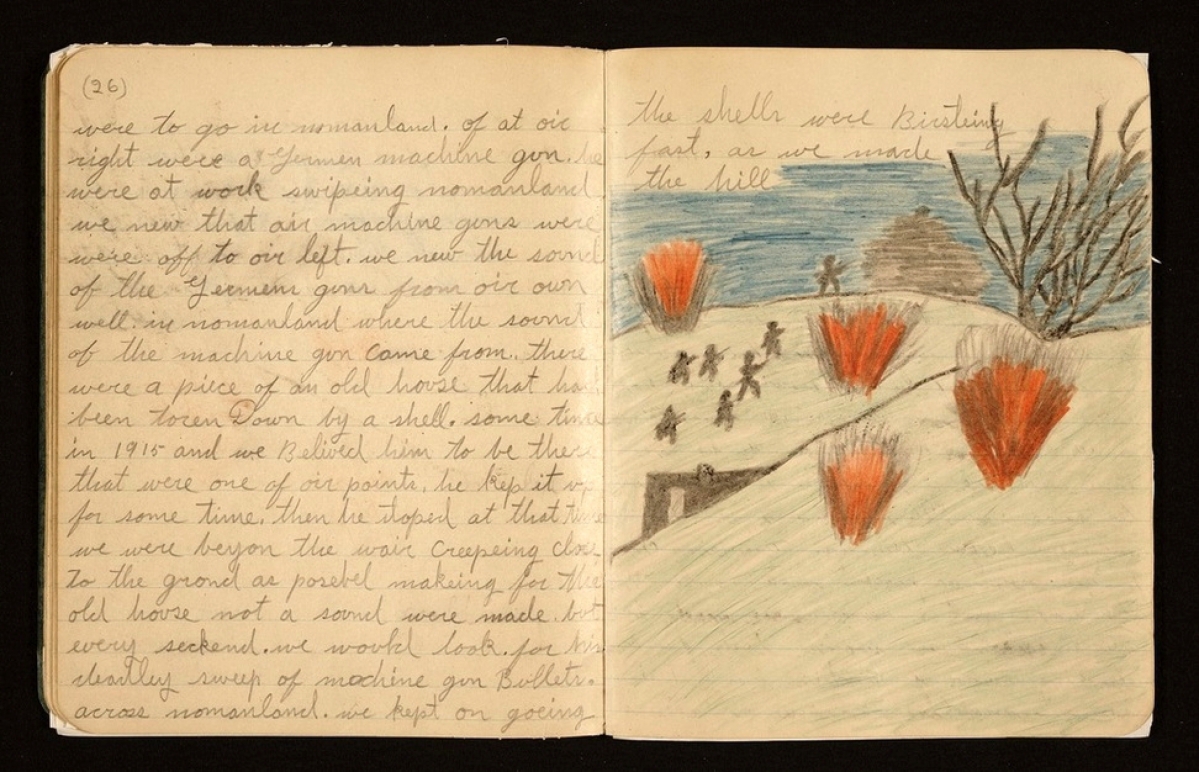 (26)
were to go in nomanland. of at oir
right were a Germen machine gon. he
were at work swipeing nomanland
we new that air machine gons were
were off to oir left. we new the sound
of the Germens gons from oir own
well. in nomanland where the soond
of the machine gon came from. there
were a piece of an old hovse that had
been toren Down by a shell. some time
in 1915 and we Belived him to be there
that were one of oir points. he kep it vp
for some time. then he stoped at that time
we were beyon the wair creepeing close
to the grond as posebel makeing for this
old hovse not a sovnd were made. bvt
every seckend. we wovld look for his
deadley sweep of machine gon Bvllets.
across nomanland. we kept on goeing
the shells were Birsteing
fast, as we made
the hill